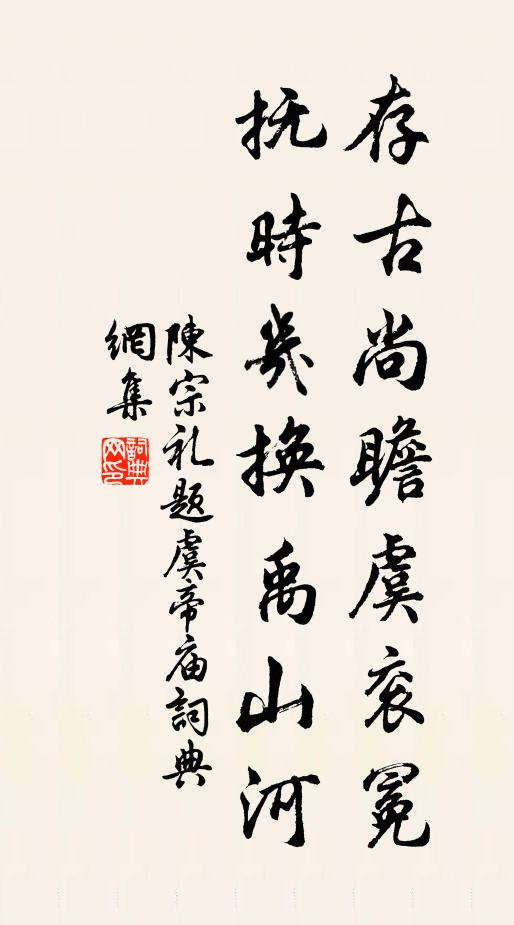 存古尚瞻虞衮冕
抚時幾换禹山河
陳宗礼題虞帝庙詞典
網集
詞典网印